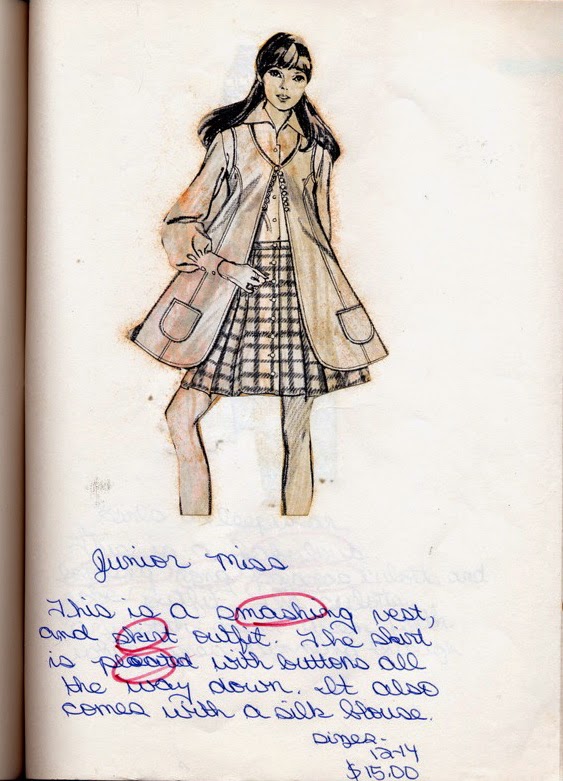 Junior Miss
This is a smashing vest,
and skirt outfit. The skirt
is pleated with buttons all
the way down. It also
comes with a silk blouse.
sizes-
12-14
$15.00